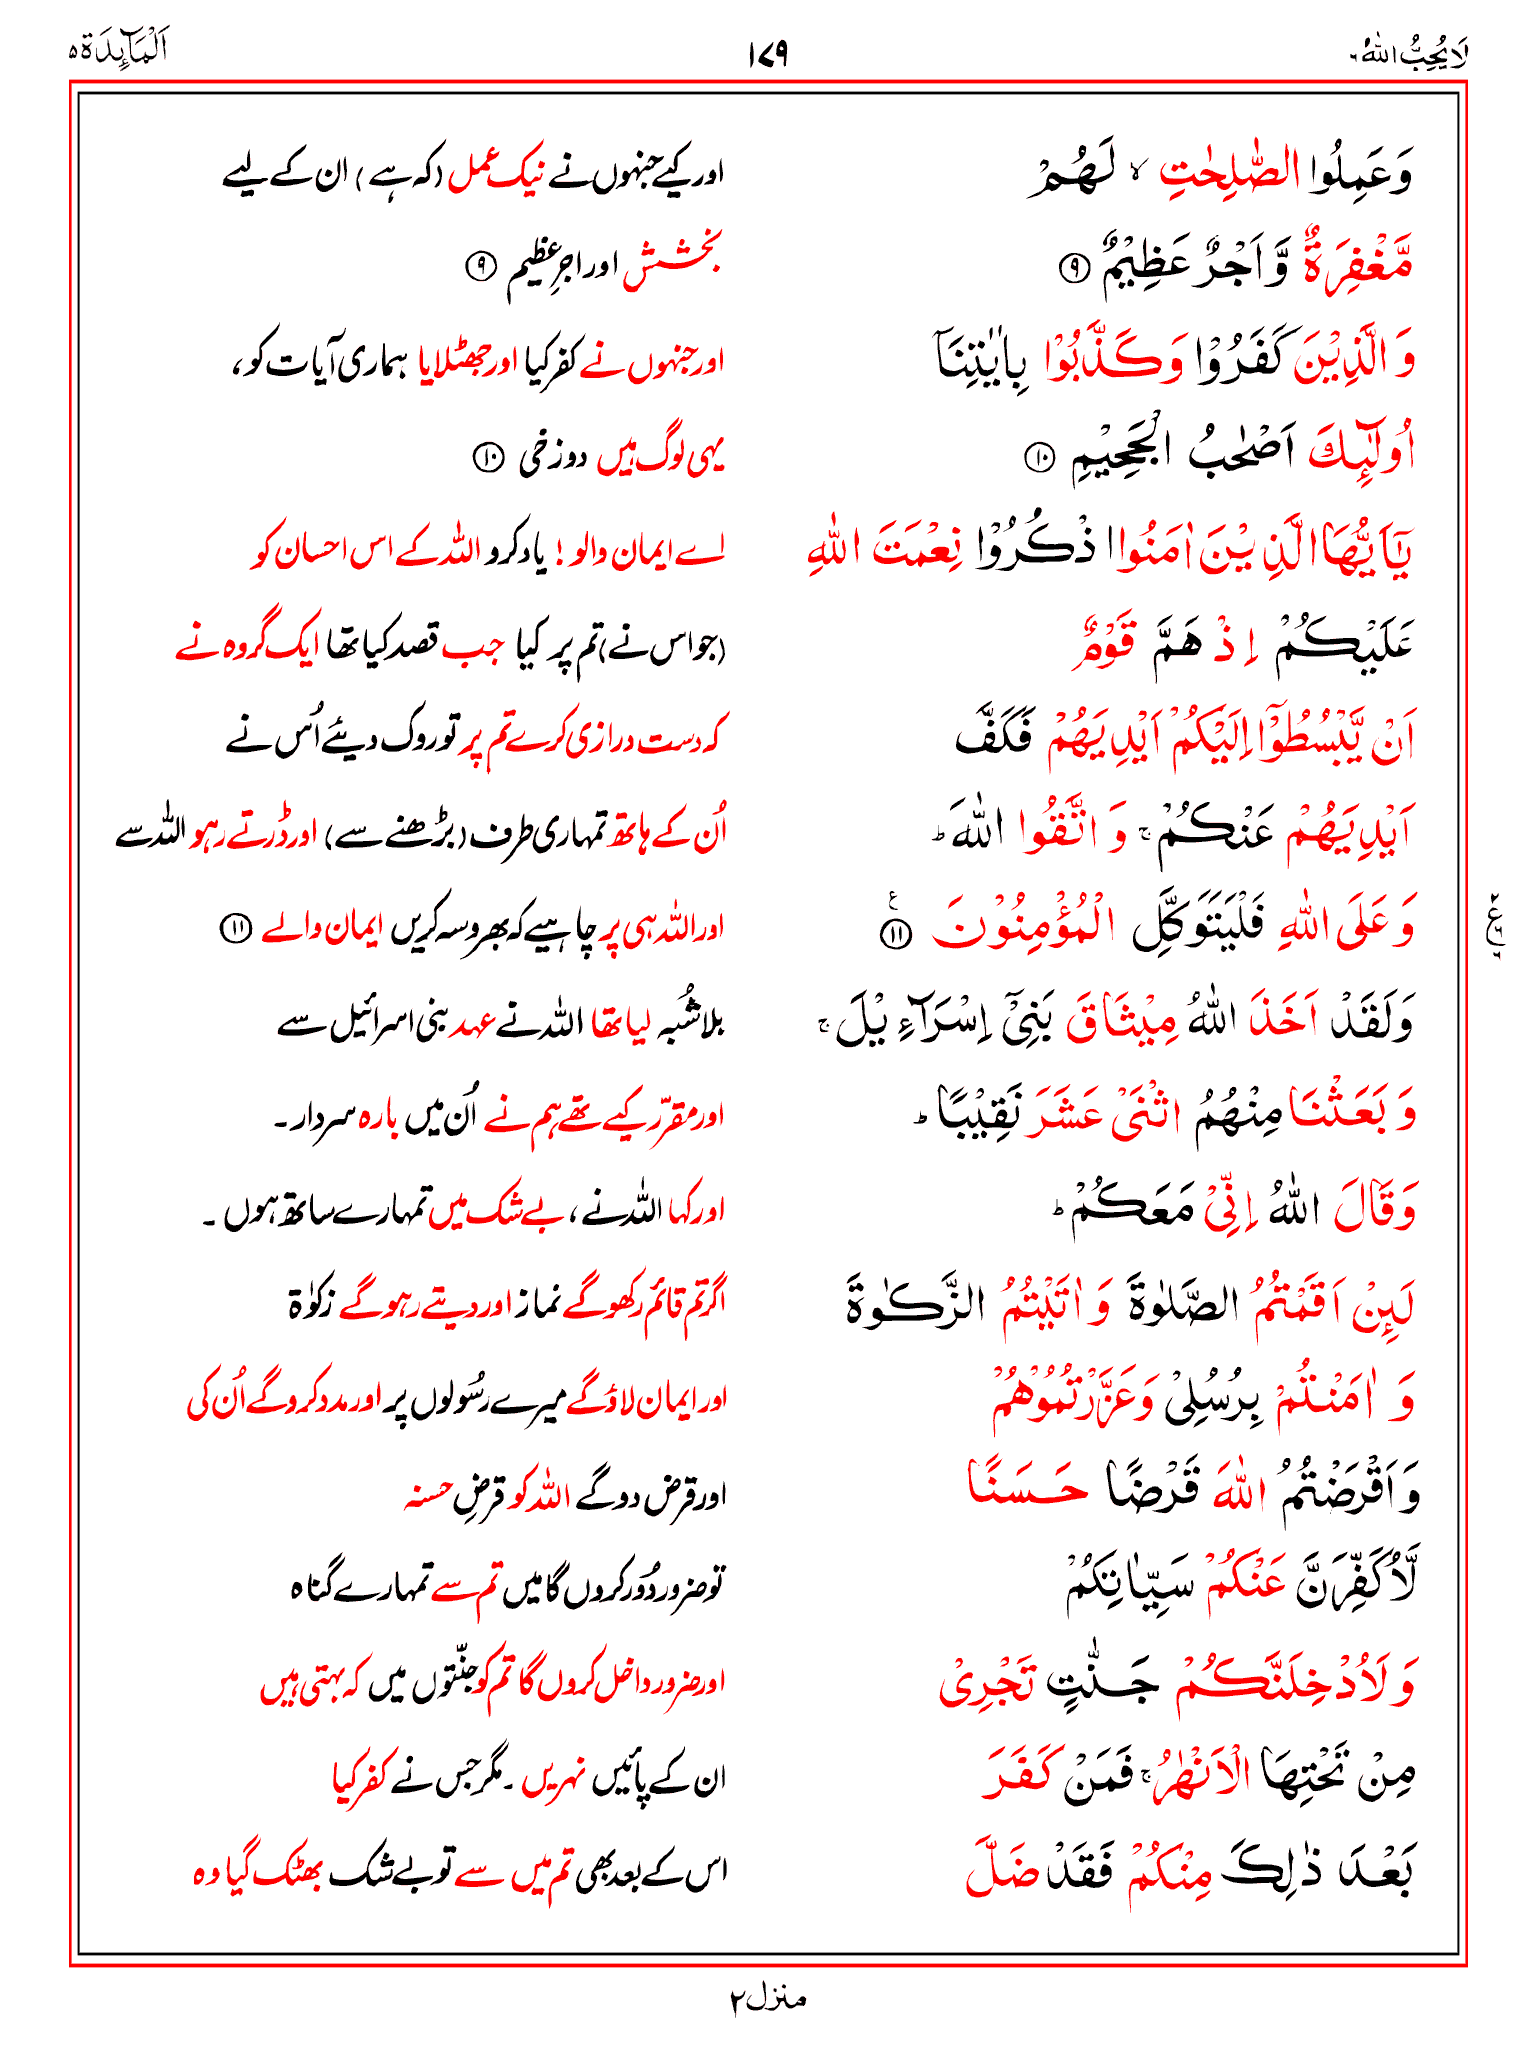 لَا يُحِبُّ اللّٰهُ ٦
١٧٩
اَلْمَآئِدَة ٥
وَعَمِلُوا الصّٰلِحٰتِ ۙ لَهُمْ
اور کیے جنہوں نے نیک عمل (کہ ہے) ان کے لیے
مَّغْفِرَةٌ وَّاَجْرٌ عَظِيْمٌ ⑨
بخشش اور اجرِ عظیم ⑨
وَالَّذِيْنَ كَفَرُوْا وَكَذَّبُوْا بِاٰيٰتِنَاۤ
اور جنہوں نے کفر کیا اور جھٹلایا ہماری آیات کو،
اُولٰٓئِكَ اَصْحٰبُ الْجَحِيْمِ ⑩
یہی لوگ ہیں دوزخی ⑩
يٰۤاَيُّهَا الَّذِيْنَ اٰمَنُوا اذْكُرُوْا نِعْمَتَ اللّٰهِ
اے ایمان والو! یاد کرو اللہ کے اس احسان کو
عَلَيْكُمْ اِذْ هَمَّ قَوْمٌ
(جو اس نے) تم پر کیا جب قصد کیا تھا ایک گروہ نے
اَنْ يَّبْسُطُوْۤا اِلَيْكُمْ اَيْدِيَهُمْ فَكَفَّ
کہ دست درازی کرے تم پر تو روک دیئے اُس نے
اَيْدِيَهُمْ عَنْكُمْ ۚ وَاتَّقُوا اللّٰهَ ؕ
اُن کے ہاتھ تمہاری طرف (بڑھنے سے) اور ڈرتے رہو اللہ سے
وَعَلَى اللّٰهِ فَلْيَتَوَكَّلِ الْمُؤْمِنُوْنَ ⑪ ع
اور اللہ ہی پر چاہیے کہ بھروسہ کریں ایمان والے ⑪
٢ ع ٦ ٦
وَلَقَدْ اَخَذَ اللّٰهُ مِيْثَاقَ بَنِيْۤ اِسْرَآءِيْلَ ۚ
بلاشُبہ لیا تھا اللہ نے عہد بنی اسرائیل سے
وَبَعَثْنَا مِنْهُمُ اثْنَيْ عَشَرَ نَقِيْبًا ؕ
اور مقرّر کیے تھے ہم نے اُن میں بارہ سردار۔
وَقَالَ اللّٰهُ اِنِّيْ مَعَكُمْ ؕ
اور کہا اللہ نے، بے شک میں تمہارے ساتھ ہوں۔
لَئِنْ اَقَمْتُمُ الصَّلٰوةَ وَاٰتَيْتُمُ الزَّكٰوةَ
اگر تم قائم رکھو گے نماز اور دیتے رہو گے زکوٰۃ
وَاٰمَنْتُمْ بِرُسُلِيْ وَعَزَّرْتُمُوْهُمْ
اور ایمان لاؤ گے میرے رسُولوں پر اور مدد کرو گے اُن کی
وَاَقْرَضْتُمُ اللّٰهَ قَرْضًا حَسَنًا
اور قرض دو گے اللہ کو قرضِ حسنہ
لَّاُكَفِّرَنَّ عَنْكُمْ سَيِّاٰتِكُمْ
تو ضرور دُور کروں گا میں تم سے تمہارے گناہ
وَلَاُدْخِلَنَّكُمْ جَنّٰتٍ تَجْرِيْ
اور ضرور داخل کروں گا تم کو جنّتوں میں کہ بہتی ہیں
مِنْ تَحْتِهَا الْاَنْهٰرُ ۚ فَمَنْ كَفَرَ
ان کے پائیں نہریں۔ مگر جس نے کفر کیا
بَعْدَ ذٰلِكَ مِنْكُمْ فَقَدْ ضَلَّ
اس کے بعد بھی تم میں سے تو بے شک بھٹک گیا وہ
منزل ٢